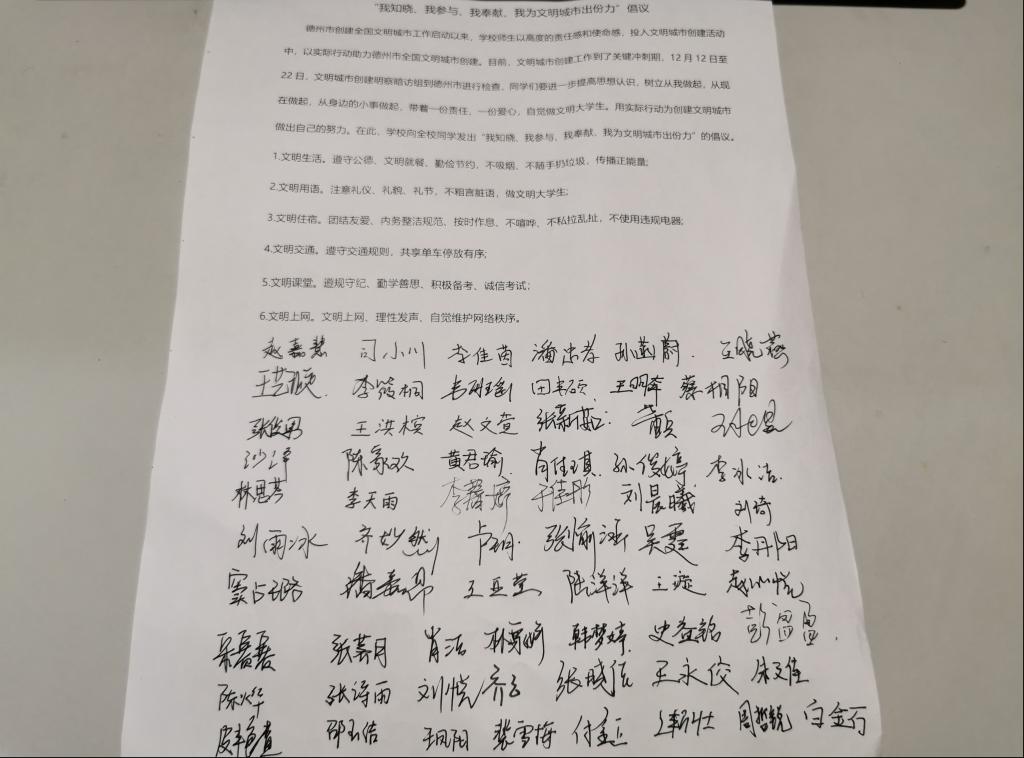 “我知晓、我参与、我奉献、我为文明城市出份力”倡议
德州市创建全国文明城市工作启动以来，学校师生以高度的责任感和使命感，投入文明城市创建活动
中，以实际行动助力德州市全国文明城市创建。目前，文明城市创建工作到了关键冲刺期，12月12日至
22日，文明城市创建明察暗访组到德州市进行检查，同学们要进一步提高思想认识，树立从我做起，从现
在做起，从身边的小事做起，带着一份责任，一份爱心，自觉做文明大学生。用实际行动为创建文明城市
做出自己的努力。在此，学校向全校同学发出“我知晓、我参与、我奉献、我为文明城市出份力”的倡议。
1.文明生活。遵守公德、文明就餐、勤俭节约，不吸烟、不随手扔垃圾，传播正能量;
2.文明用语。注意礼仪、礼貌、礼节，不粗言脏语，做文明大学生;
3.文明住宿。团结友爱、内务整洁规范、按时作息、不喧哗、不私拉乱扯，不使用违规电器;
4.文明交通。遵守交通规则，共享单车停放有序;
5.文明课堂。遵规守纪、勤学善思、积极备考、诚信考试;
6.文明上网。文明上网、理性发声、自觉维护网络秩序。
赵嘉慧 司小川 李佳茵 潘忠孝 王晓燕
李筱桐 蔡栩阳
张俊男 王洪槟 赵文萱
沙泽 陈家欢 黄君瑜 肖佳琪 孙俊婷 李冰洁
林思芩 李天雨 李馨婷 于佳彤 刘晨曦 刘琦
刘雨冰 齐妙然 张瑜涵 吴雯 李丹阳
王亚萱 陆洋洋
肖洁 韩梦婷 史益铭 彭盈盈
陈烨 张诗雨 刘悦 张晓倩 王永佼 朱文佳
邵玉洁 裴雪梅 周哲锐